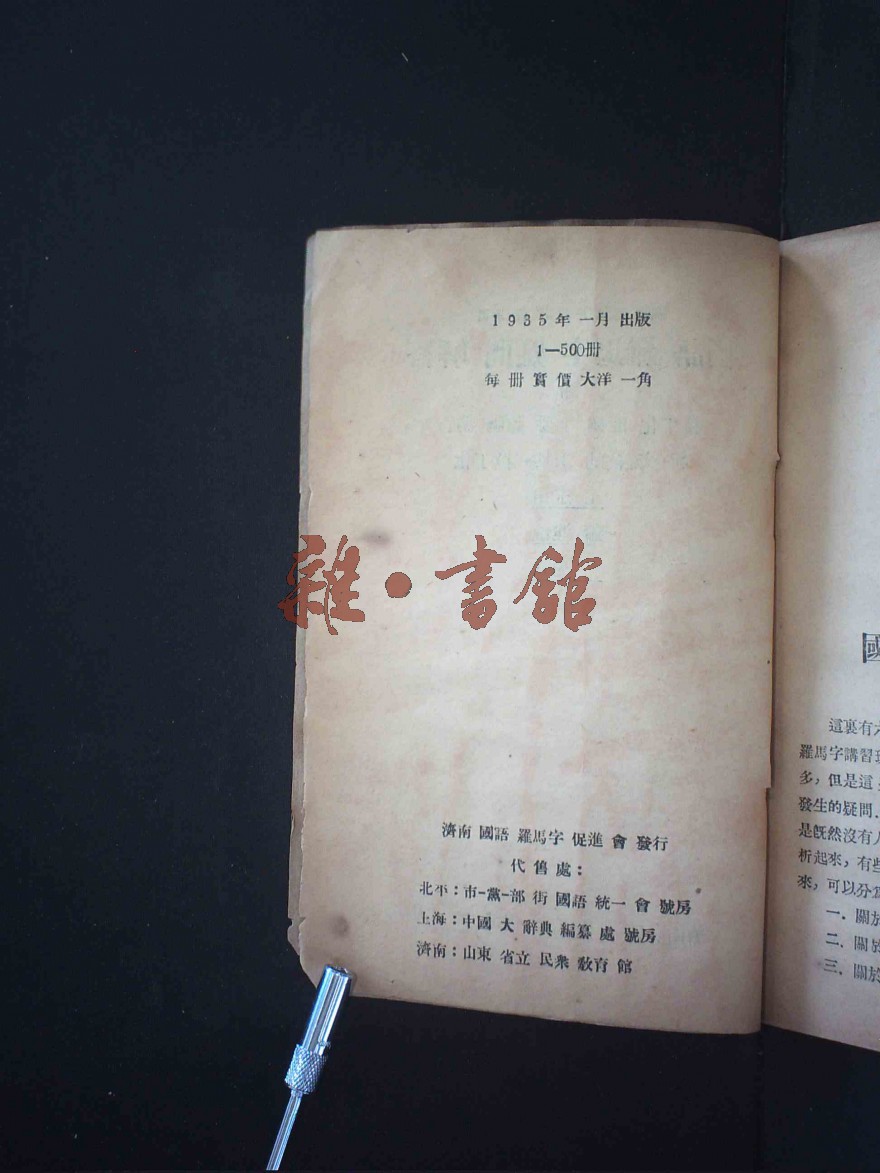 1935年 一月 出版
1—500册
每 册 實 價 大洋 一角
雜·書館
濟南 國語 羅馬字 促進 會 發行
代 售 處：
北平：市-黨-部 街 國語 統一 會 號房
上海：中國 大 辭典 編纂 處 號房
濟南：山東 省立 民衆 敎育 館
國
這裏有六
羅馬字講習班
多，但是這
發生的疑問．
是旣然沒有人
析起來，有些
來，可以分爲
一．關於
二．關於
三．關於